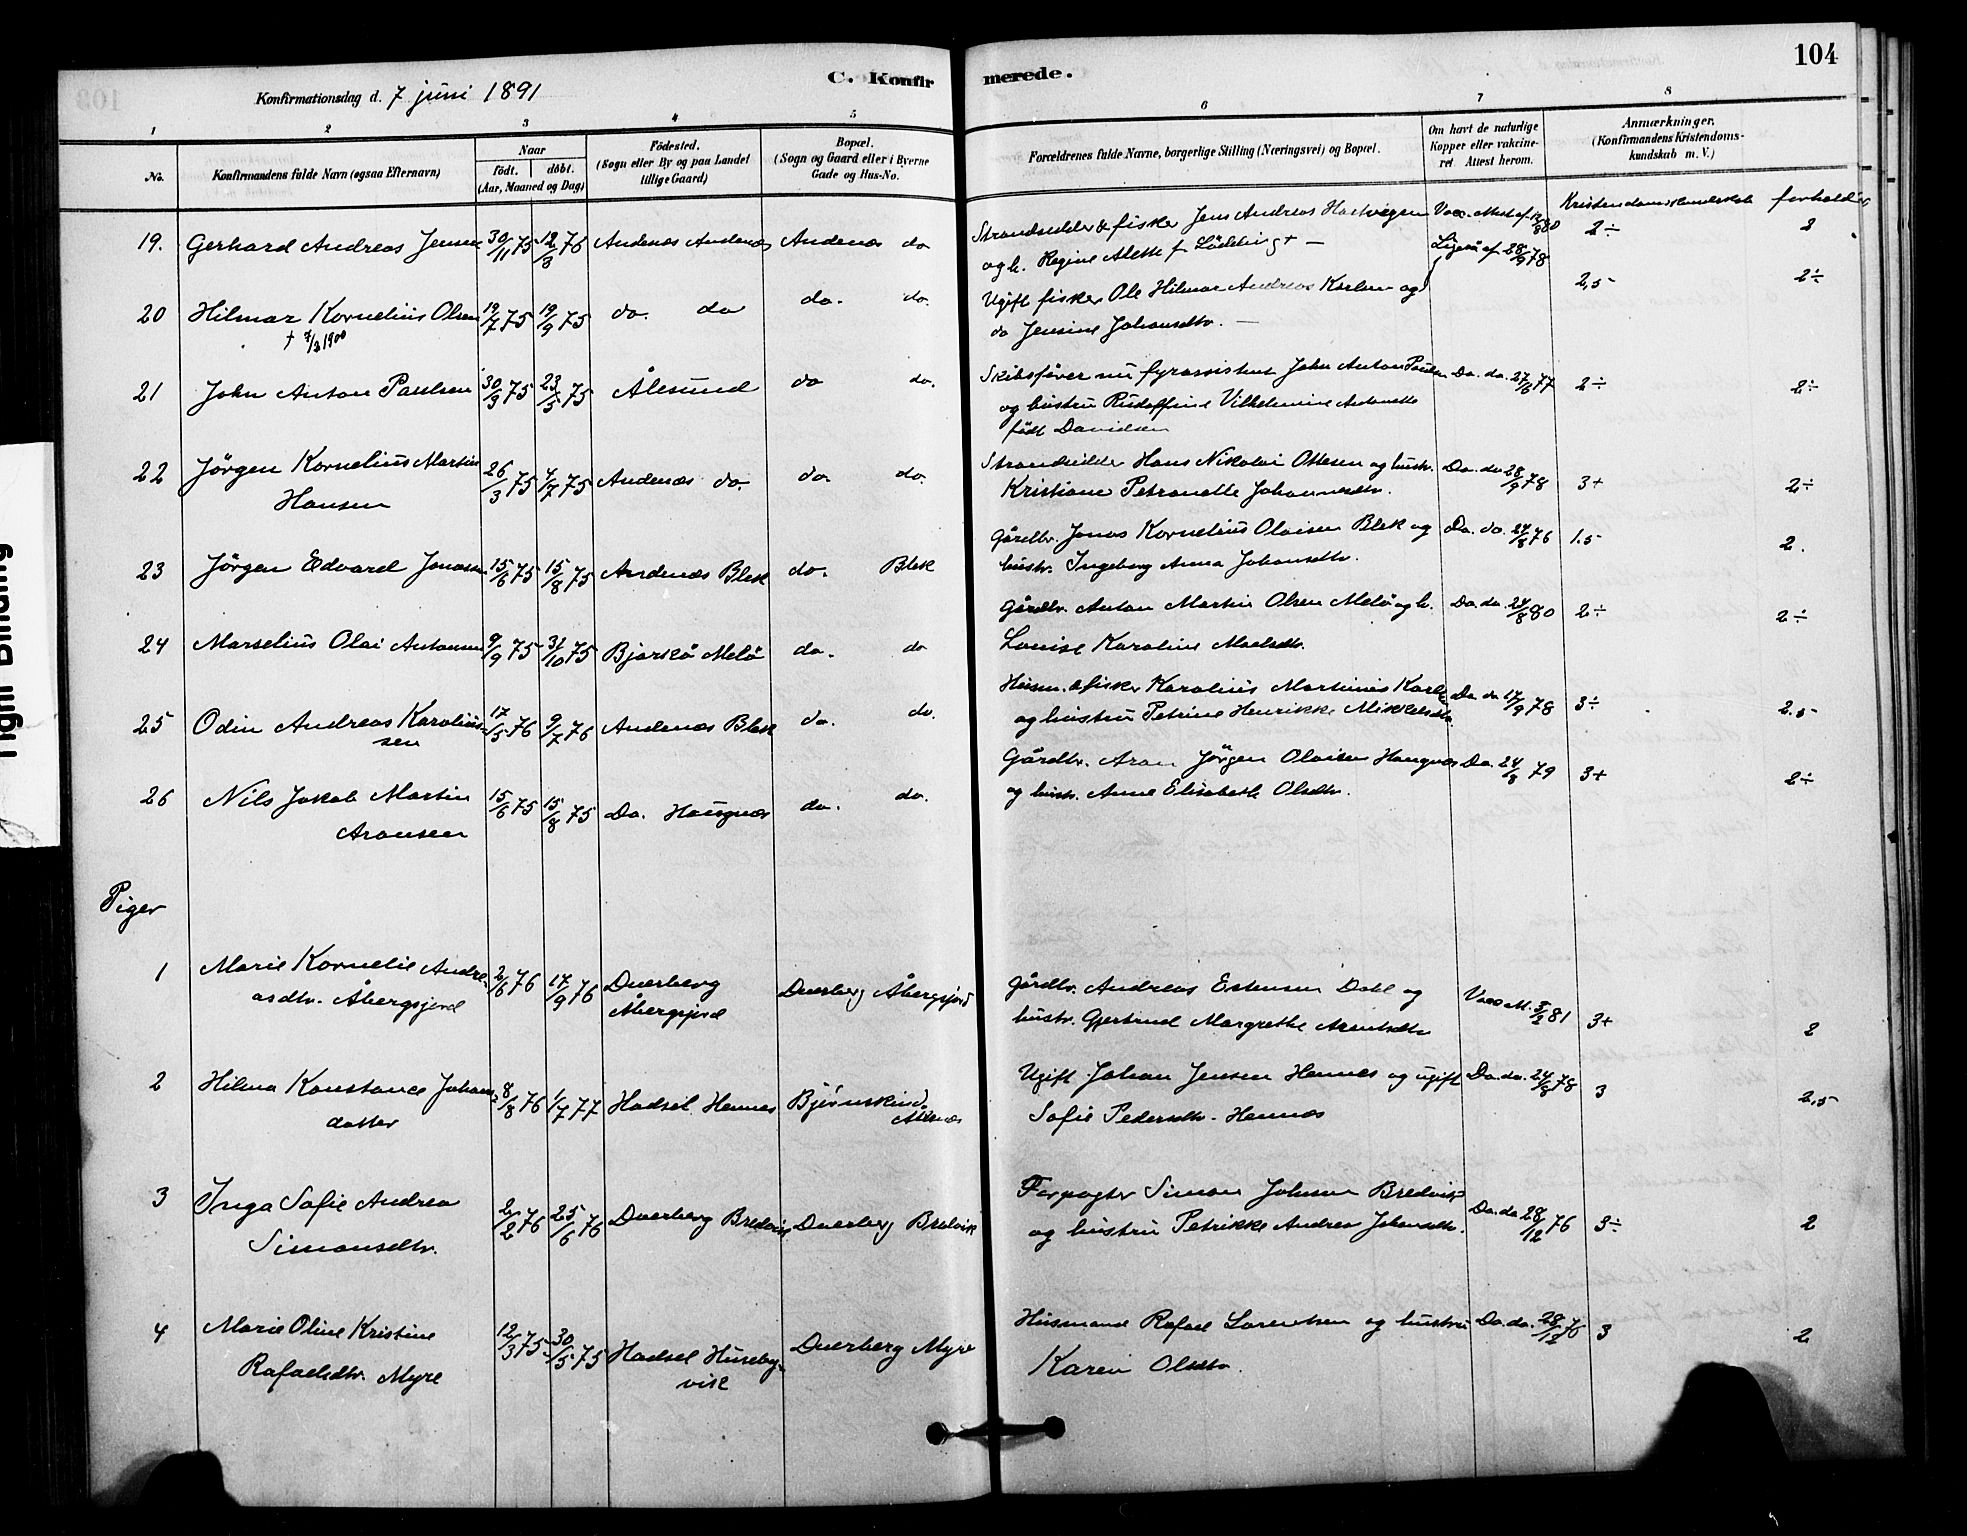 104
C. Konfirmerede.
Konfirmationsdag d. 7 juni 1891
1 2 3 4 5 6 7 8
No. Konfirmandens fulde Navn (ogsaa Efternavn) Naar født. døbt. (Aar, Maaned og Dag) Fødested. (Sogn eller By og paa Landet tillige Gaard) Bopæl. (Sogn og Gaard eller i Byerne Gade og Hus-No. Forældrenes fulde Navne, borgerlige Stilling (Næringsvei) og Bopæl. Om havt de naturlige Kopper eller vakcineret Attest herom. Anmærkninger. (Konfirmandens Kristendomskundskab m. V.)
Kristendomskundskab forholder
19. Gerhard Andreas Jensen 30/11 75 12/3 76 Andenæs Andenæs Andenæs do Strandsidder & fisker Jens Andreas Hartvigsen 2÷ 2
og h. Regine Alette f. Lödding + —
20 Hilmar Kornelius Olsen 19/7 75 19/9 75 do. do do. do. Ugift fisker Ole Hilmar Andreas Karlsen og Ligeså af 28/9 78 2,5 2÷
do Jensine Johansdtr. —
21 John Anton Paulsen 30/3 75 23/5 75 Ålesund do do. Skibsfører nu fyrassistent John Anton Paulsen Do. do. 27/6 77 2÷ 2÷
og hustru Vilhelmine Antonette
født Davidsen
22 Jörgen Kornelius Martin 26/3 75 4/7 75 Andenæs do. do. do. Strandsidder Hans Nikolai Ottesen og hustr. Do. do 28/9 78 3+ 2÷
Hansen Kristiane Petronelle Johannesdtr.
23 Jörgen Edvard Jonassen 15/6 75 15/8 75 Andenæs Blek do. Blek Gårdbr. Jonas Kornelius Olaisen Blek og Do. do. 24/8 76 1.5 2.
hustr. Ingeborg Anna Johansdtr.
24 Marselius Olai Antonsen 9/9 75 31/10 75 Bjarkö Melö do. do Gårdbr. Anton Martin Olsen Melö og h. Do. do. 24/8 80 2÷ 2÷
Louise Karoline
25 Odin Andreas Karolius- 17/5 76 9/7 76 Andenæs Blek do. do. Husm. & fisker Karolius Martinus Karls. Do. do 17/9 78 3÷ 2.5
sen og hustru Petrine Henrikke Mikkelsdtr.
26 Nils Jakob Martin 15/6 75 15/8 75 Do. Haugnæs do. do. Gårdbr. Aron Jörgen Olaisen Haugnæs Do. 24/8 79 3+ 2÷
Aronsen og hustr. Anne Elisabeth Olsdtr.
Piger
1 Marie Kornelie Andre- 2/6 76 17/9 76 Dverberg Dverberg Åbergsjord Gårdbr. Andreas Estensen Dahl og 3+ 2
asdtr. Åbergsjord Åbergsjord hustr. Gjertrud Margrethe Arentsdtr
2 Hilma Konstance Johans- 8/8 76 1/7 77 Hadsel Hennes Björnskind Ugift Johan Jensen Hennes og ugift Do. do. 24/8 78 3 2,5
datter Åknæs Sofie Pedersdtr. Hennes
3 Inga Sofie Andrea 2/2 76 25/6 76 Dverberg Bredvik Dverberg Bredvik Forpagter Simon Johnsen Bredvik Do. do 28/12 76 3÷ 2
Simonsdtr. og hustru Petrikke Andrea Johansdtr.
4 Marie Oline Kristine 12/3 75 30/5 75 Hadsel Huseby- Dverberg Myre Husmand Rafael Lorentsen og hustru Do. do. 28/12 76 3 2
Rafaelsdtr. Myre vik Karen Olsdtr.